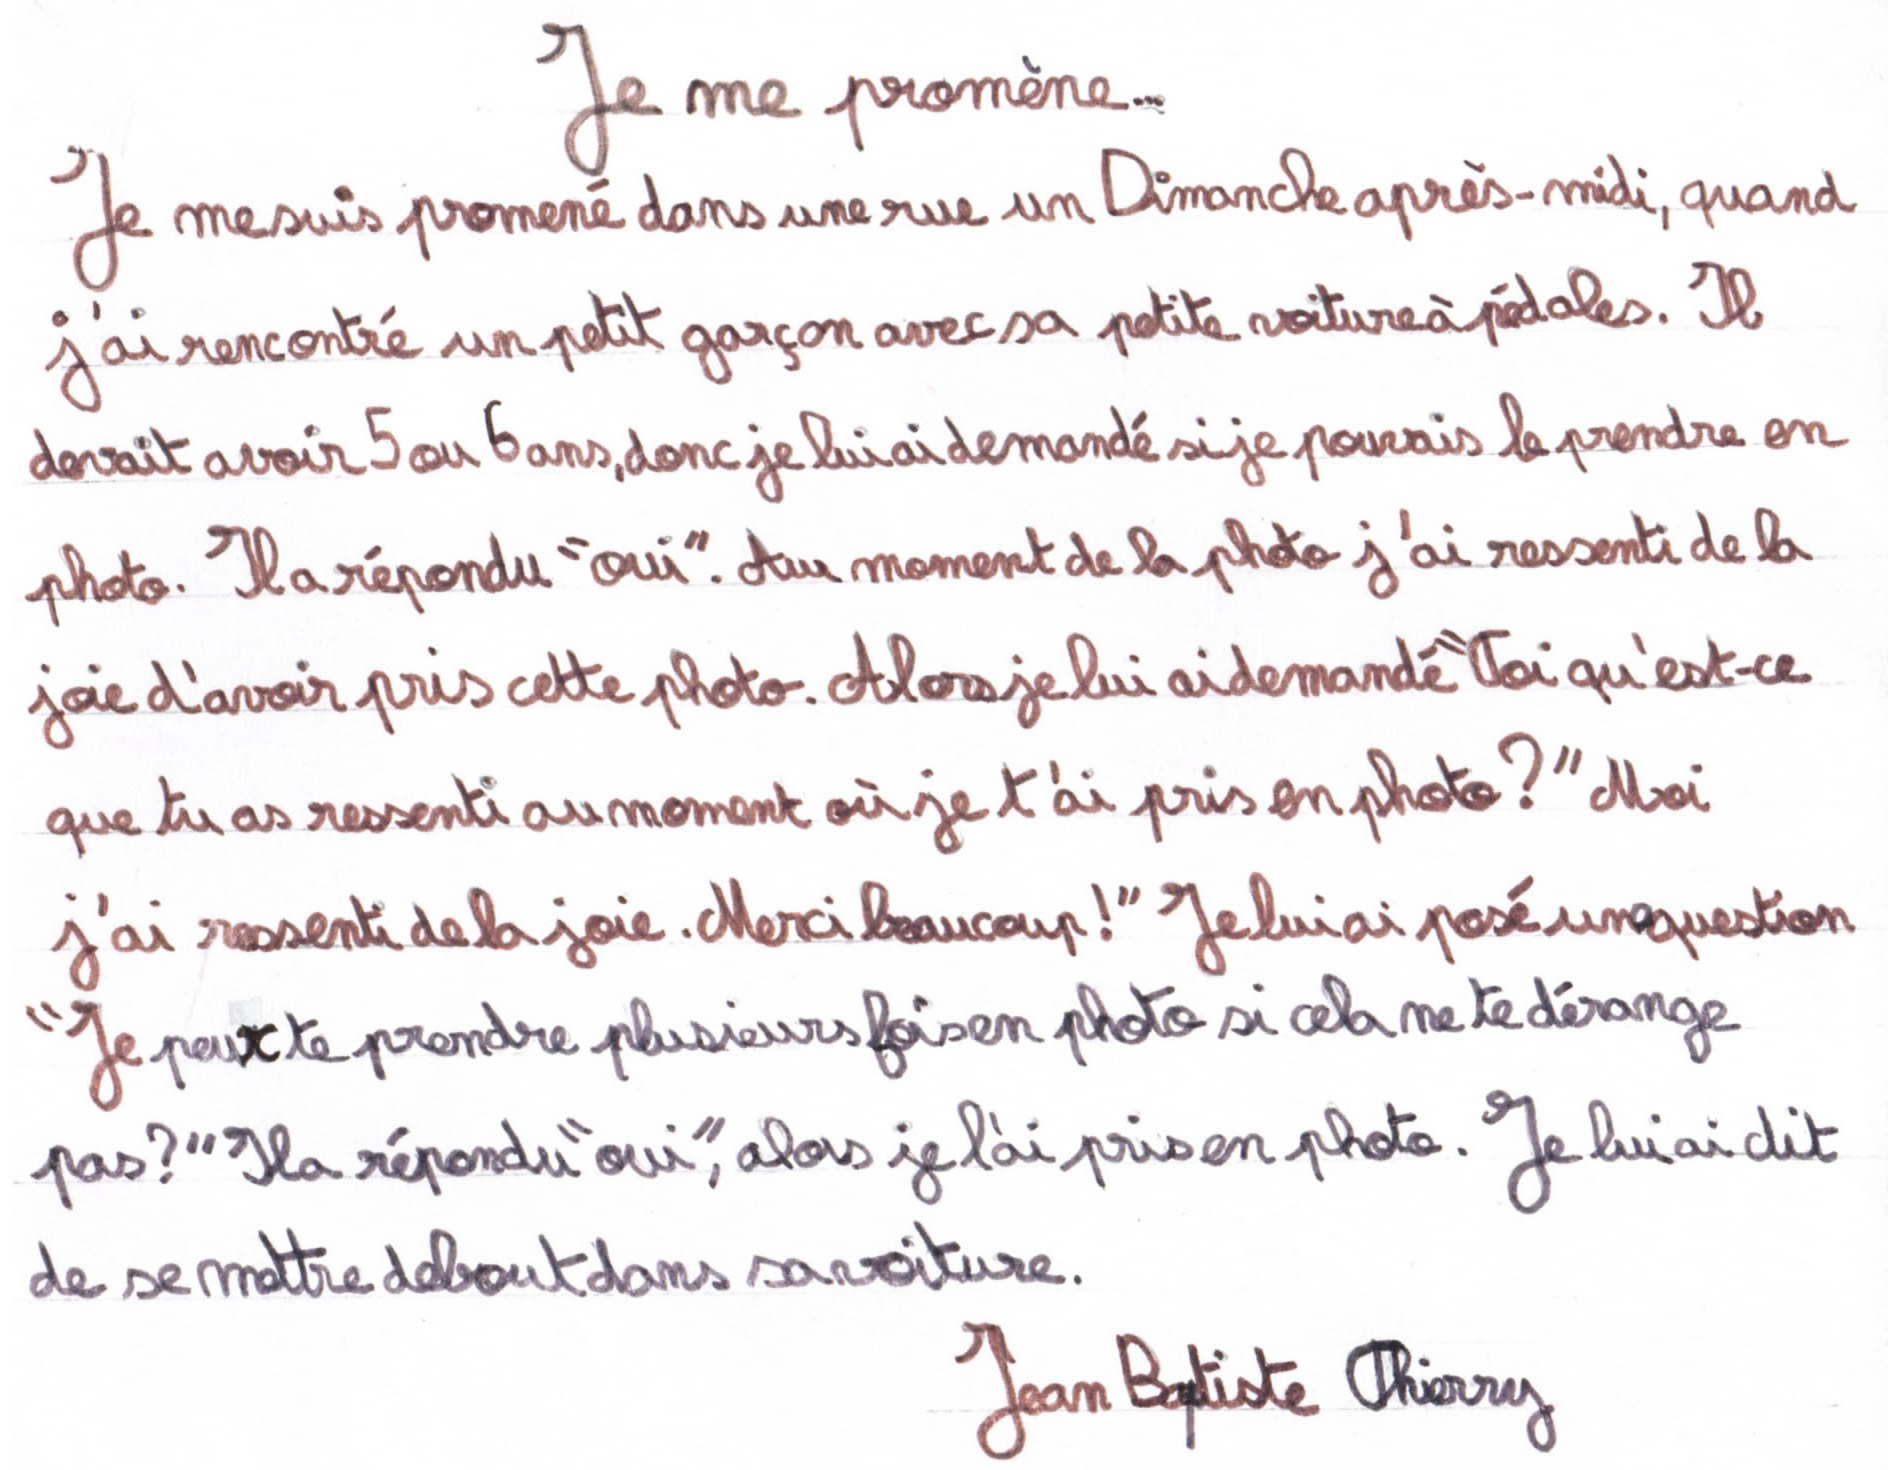 Je me promène...
Je me suis promené dans une rue un Dimanche après-midi, quand
j'ai rencontré un petit garçon avec sa petite voiture à pédales. Il
devait avoir 5 ou 6 ans, donc je lui ai demandé si je pouvais le prendre en
photo. Il a répondu "oui". Au moment de la photo j'ai ressenti de la
joie d'avoir pris cette photo. Alors je lui ai demandé "Toi qu'est-ce
que tu as ressenti au moment où je t'ai pris en photo ?" Moi
j'ai ressenti de la joie. Merci beaucoup !" Je lui ai posé une question
"Je peux te prendre plusieurs fois en photo si cela ne te dérange
pas ?" Il a répondu "oui", alors je l'ai pris en photo. Je lui ai dit
de se mettre debout dans sa voiture.
Jean Baptiste Thierry